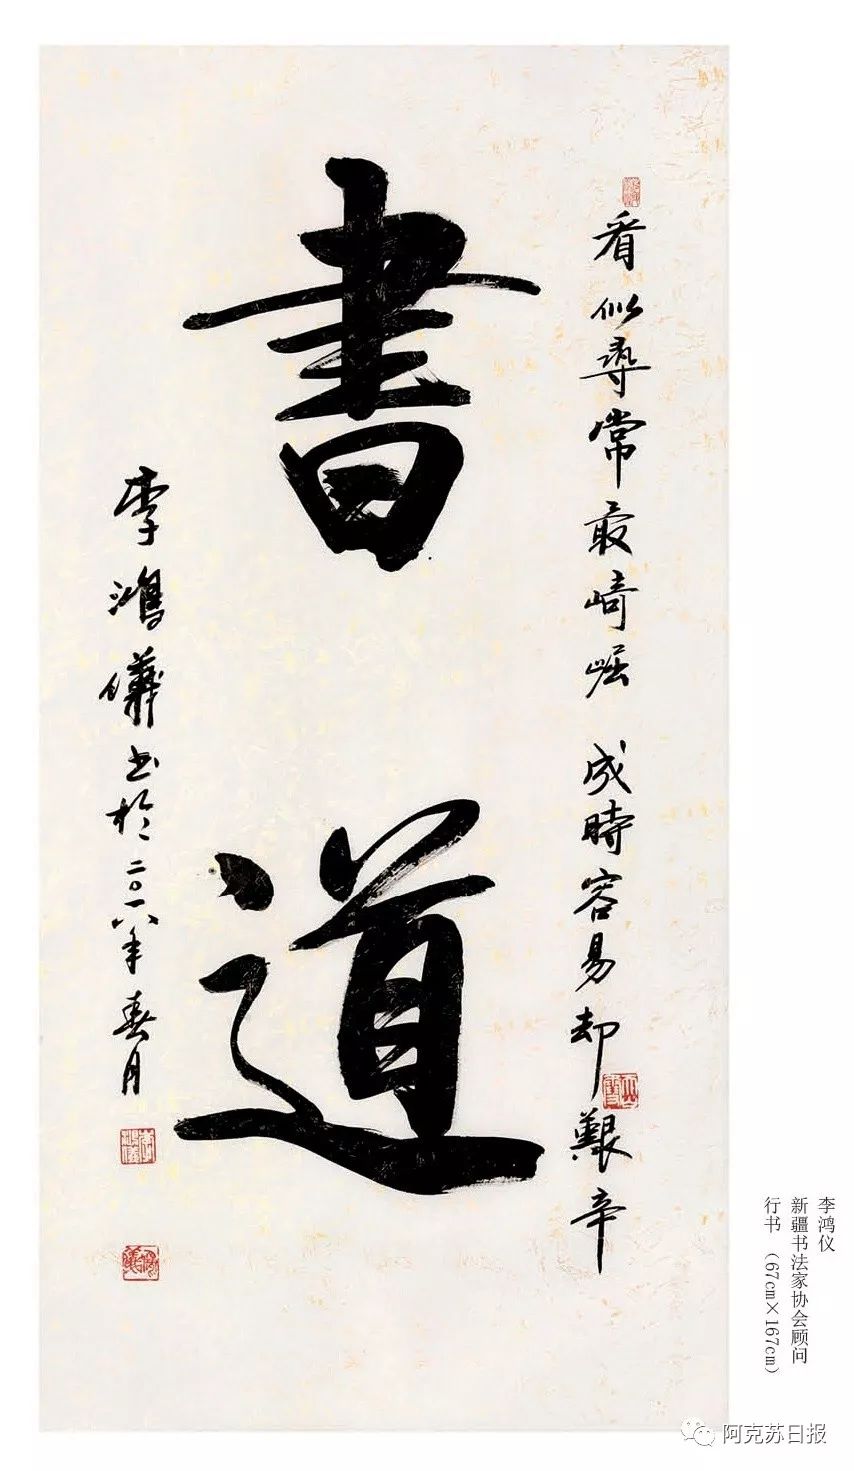 看似尋常最崎崛 成時容易却艱辛
書道
李鴻儀书於二〇一八年春月
李鸿仪
新疆书法家协会顾问
行书 (67cm×167cm)
阿克苏日报